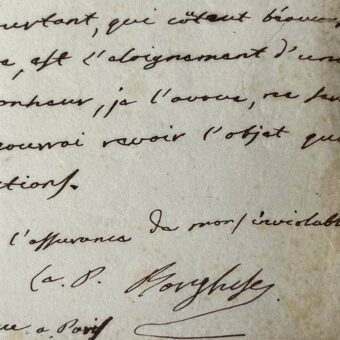 ourtant, qui coûtent beaucou
e, est l'aloignement d'un
onheur, je l'avoue, ne se
pourrai revoir l'objet que
ctions.
l'assurance de mon inviolabl
C. P. Borghese
ue a Paris